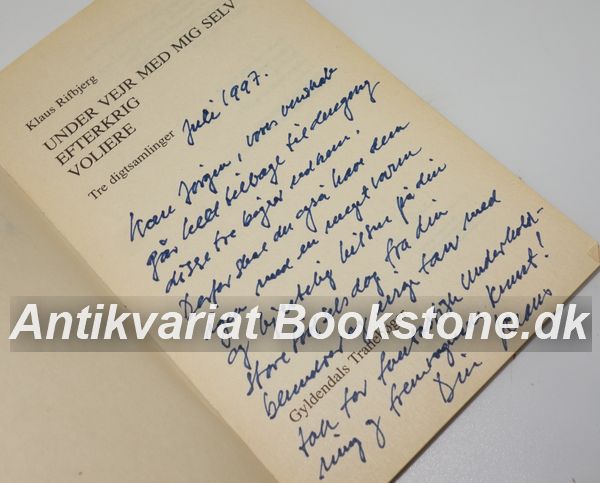 Klaus Rifbjerg
UNDER VEJR MED MIG SELV
EFTERKRIG
VOLIERE
Tre digtsamlinger
Juli 1997.
Kære Jørgen, vores venskab
går helt tilbage til dengang
disse tre bøger udkom.
Derfor skal du også have dem
igen, med en meget varm
og hjertelig hilsen på din
store dag, fra din
beundrer tak med
tak for fantastisk underhold-
ning og fremragende kunst!
Din Klaus
Gyldendals
Antikvariat Bookstone.dk